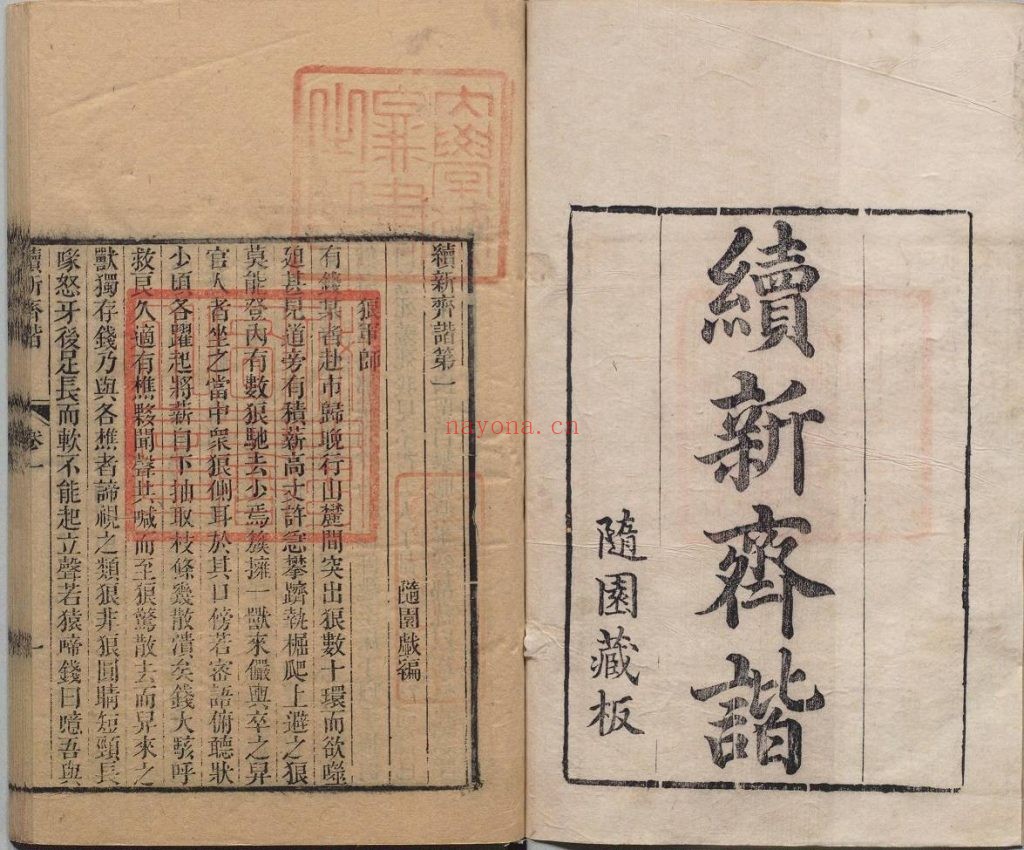 續新齊諧
隨園藏板
續新齊諧第一
隨園戲編
狼軍師
有錢某者赴市歸晚行山麓間突出狼數十環而欲噬
廹甚見道旁有積薪高丈許急攀躋執掘爬上避之狼
莫能登內有數狼馳去少焉簇擁一獸來儼輿卒之舁
官人者坐之當中衆狼側耳於其口傍若密語俯聽狀
少頃各躍起將薪自下抽取枝條幾散潰矣錢大駭呼
救良久適有樵夥聞聲共喊而至狼驚散去而舁來之
獸獨存錢乃與各樵者諦視之類狼非狼圓睛短頸長
喙怒牙後足長而軟不能起立聲若猿啼錢曰噫吾與
續新齊諧
卷一
一
nayona.cn